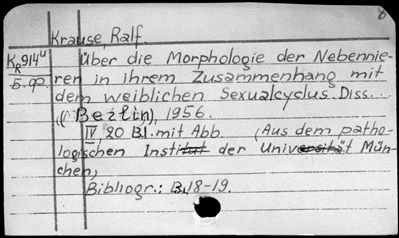 8
Krause, Ralf.
KR 914u Über die Morphologie der Nebennie-
5.90 ren in ihrem Zusammenhang mit
dem weiblichen Sexualcyclus. Diss.
(Berlin), 1956.
IV 20 Bl. mit Abb. (Aus dem patho-
logischen Institut der Universität Mün-
chen)
Bibliogr.: Bl. 18-19.